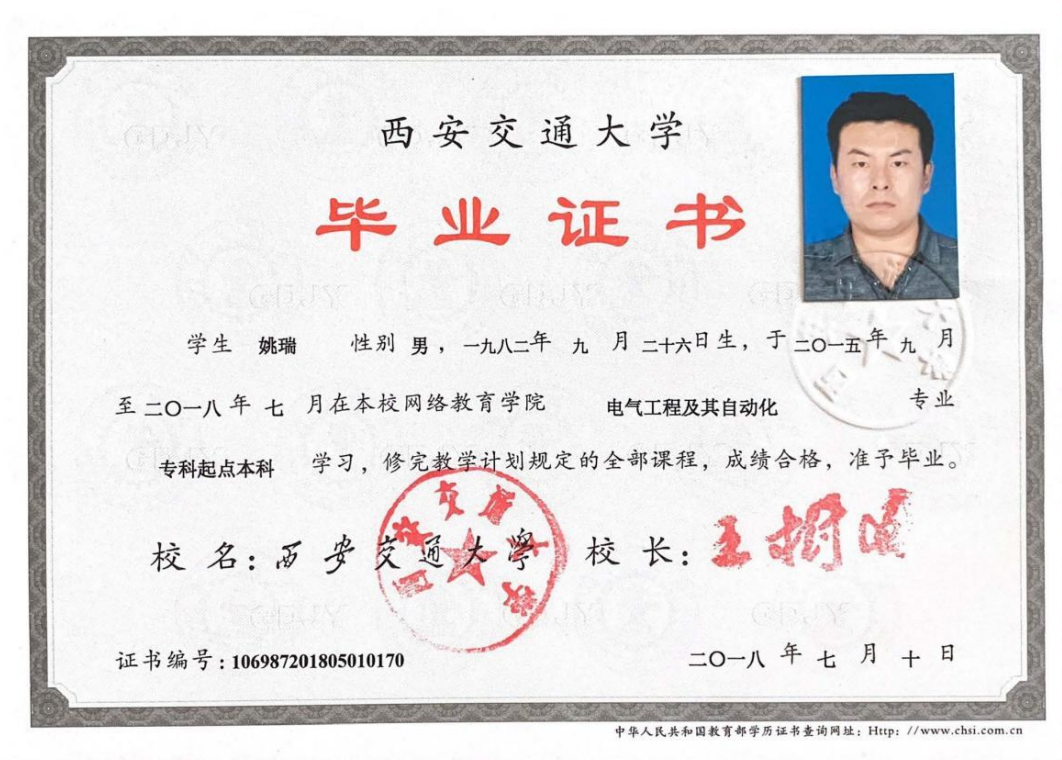 西安交通大学
毕业证书
学生 姚瑞 性别 男，一九八二年 九 月 二十六日生，于 二〇一五年 九 月
至 二〇一八 年 七 月在本校网络教育学院 电气工程及其自动化 专业
专科起点本科 学习，修完教学计划规定的全部课程，成绩合格，准予毕业。
校 名：西安交通大学 校 长：
证书编号：106987201805010170
二〇一八 年 七 月 十 日
中华人民共和国教育部学历证书查询网址：Http：//www.chsi.com.cn